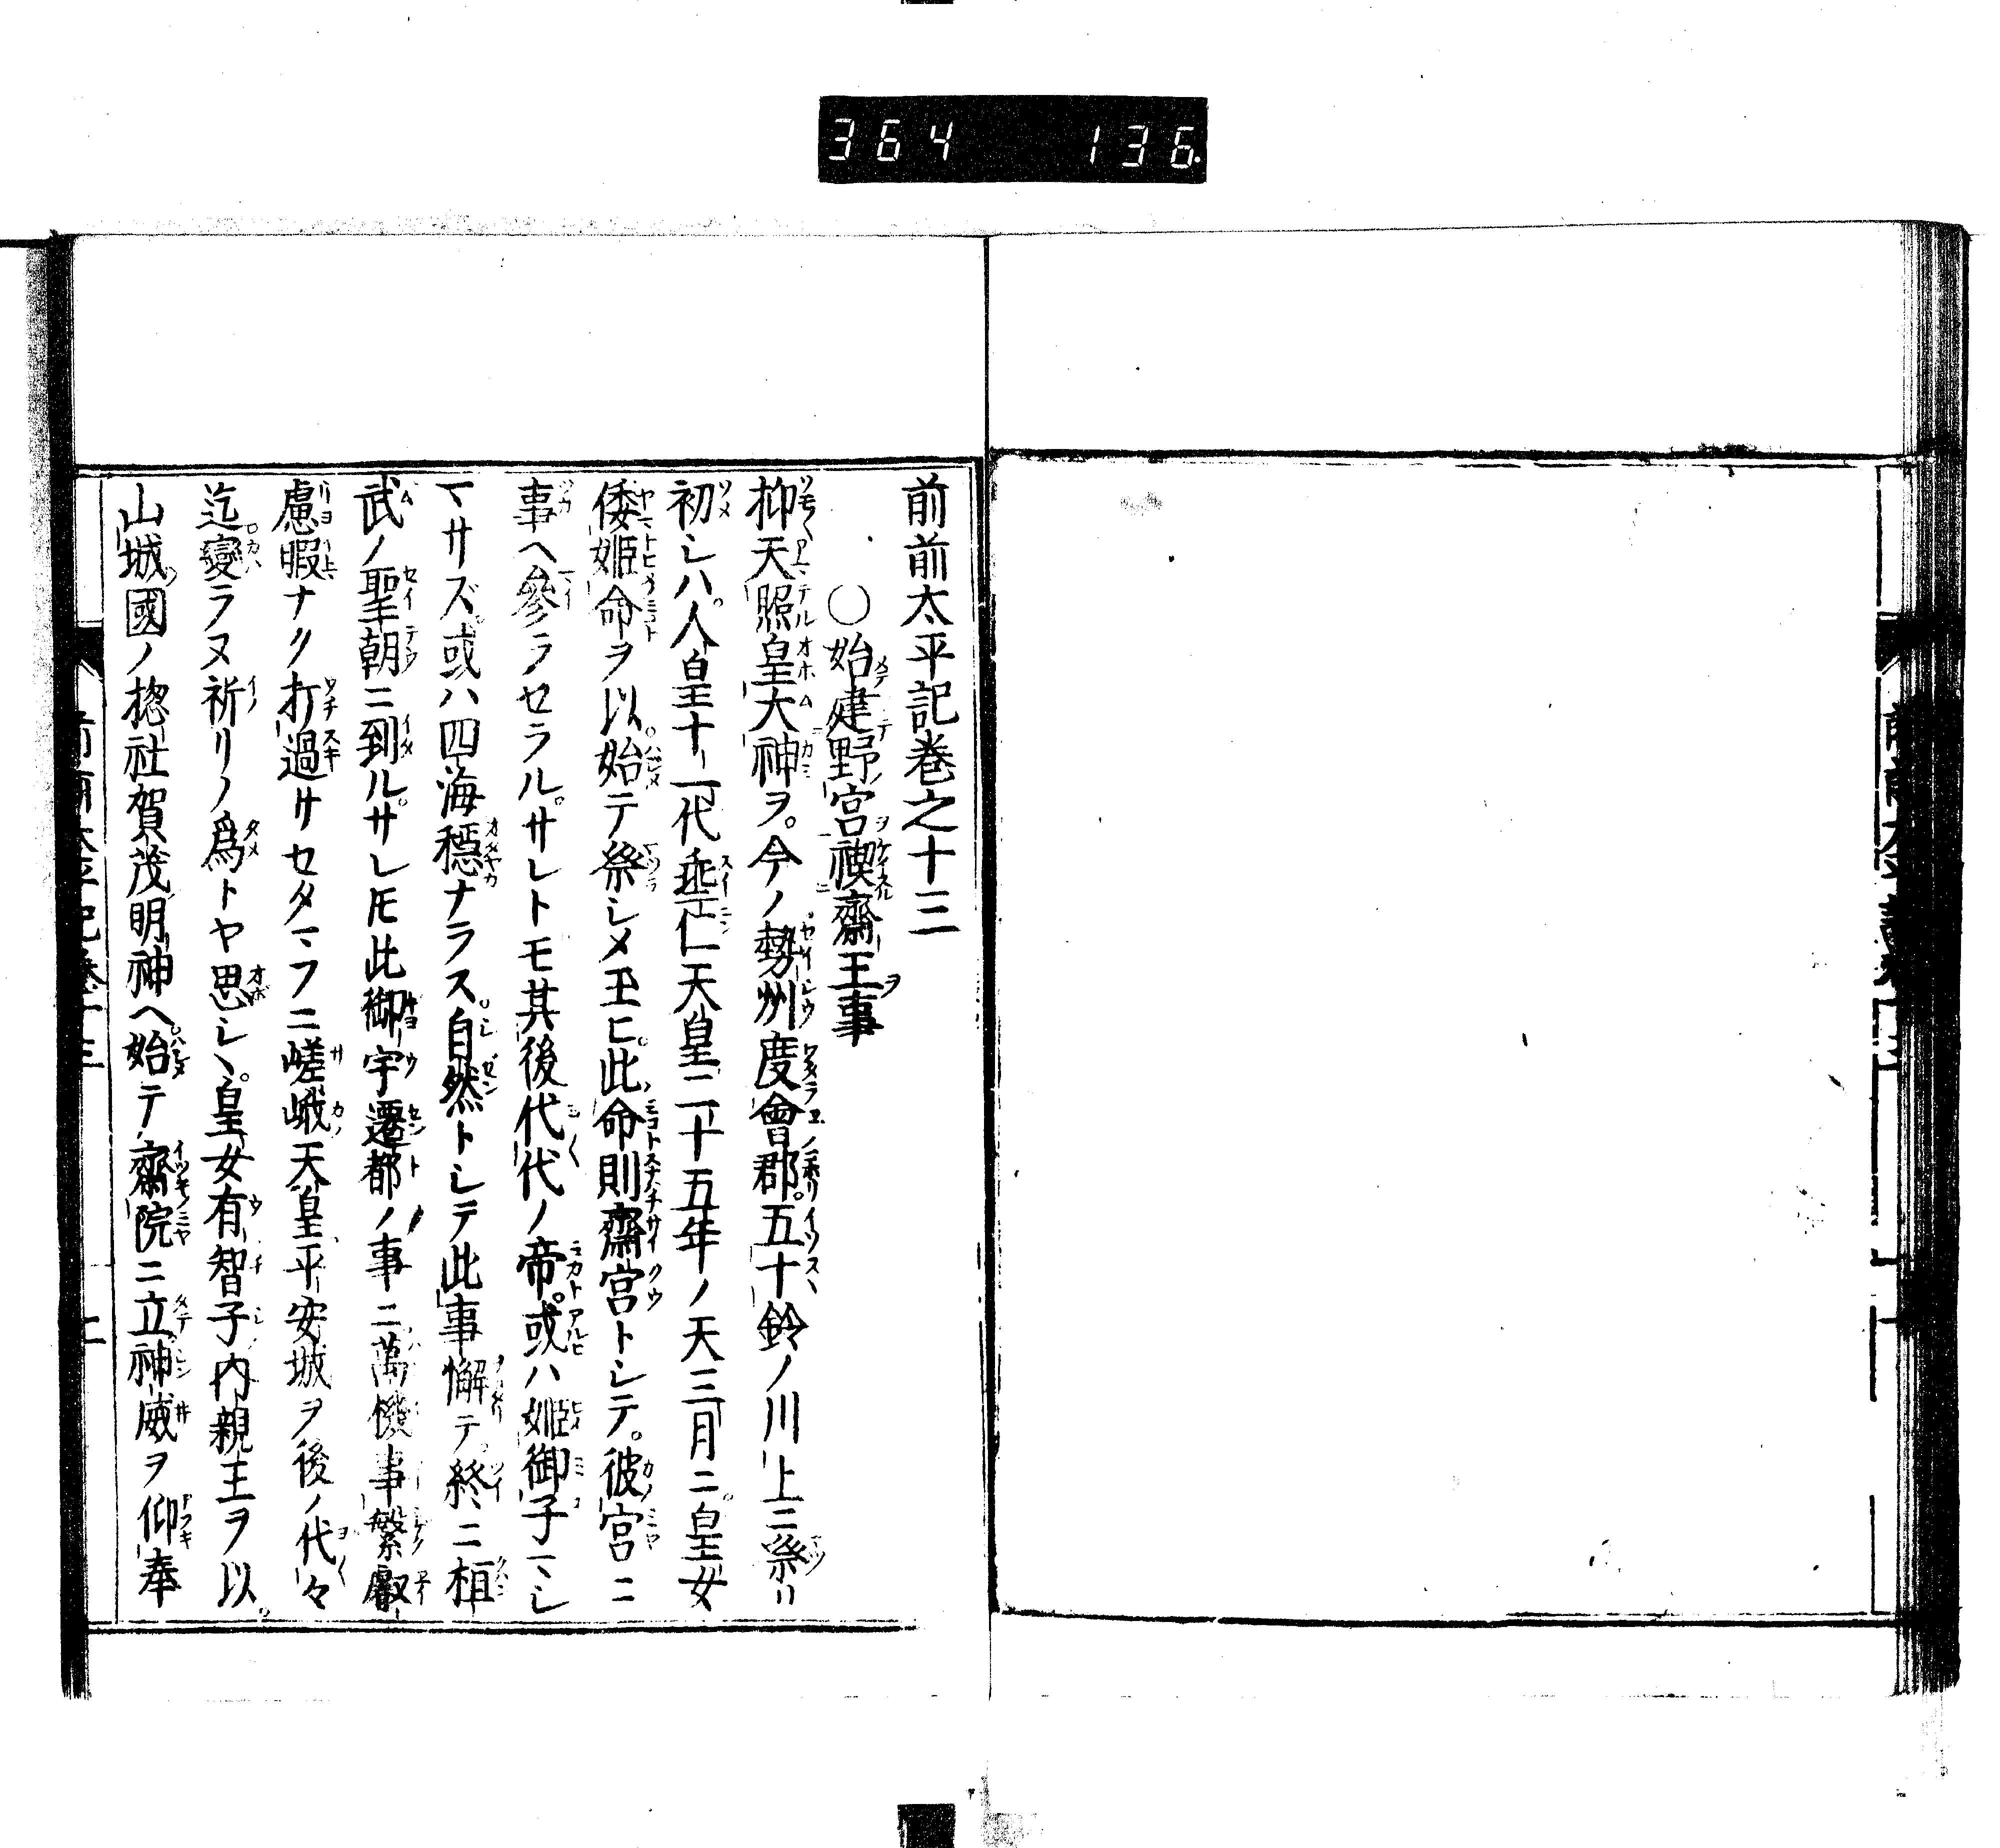 364 136
前前太平記巻之十三
○始建野宮禊齋王事
抑天照皇大神ヲ。今ノ勢州度會郡。五十鈴ノ川上ニ祭リ
初シハ。人皇十一代垂仁天皇二十五年ノ天三月ニ。皇女
倭姫命ヲ以。始テ祭シメ玉ヒ。此命則齋宮トシテ。彼宮ニ
事ヘ參ラセラル。サレトモ其後代代ノ帝。或ハ姫御子マシ
マサズ。或ハ四海穩ナラス。自然トシテ此事懈テ。終ニ桓
武ノ聖朝ニ到ル。サレ𪜈此御宇遷都ノ事ニ萬機事繁叡
慮暇ナク打過サセタマフニ嵯峨天皇平安城ヲ後ノ代々
迄變ラヌ祈リノ爲トヤ思シヽ。皇女有智子内親王ヲ以。
山城國ノ惣社賀茂明神ヘ。始テ齋院ニ立神威ヲ仰奉
前前太平記巻十三